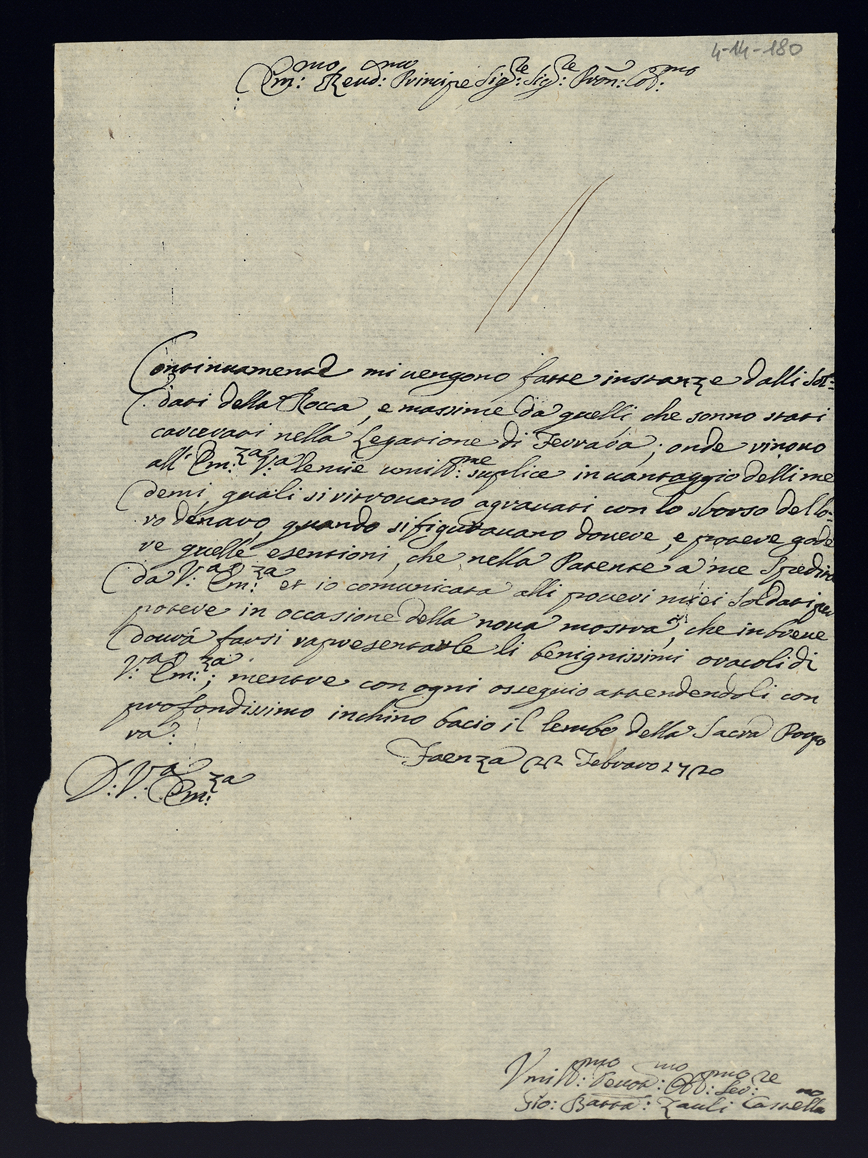 4-14-180
Em:mo Reud:mo Principe Sig:re Sig:re Pron: Col:mo
Continuamente mi uengono fatte instanze dalli Sol=
dati della Rocca, e massime da quelli, che sonno stati
carcerati nella Legatione di Ferrara; onde vinoro
all' Em:za V:a le mie umil:me suplice in uantaggio delli me
demi, quali si ritrouano agrauati con lo sborso del lo=
ro denaro, quando si figurauano douere, e potere gode
re quelle esentioni, che nella Patente a me spedita
da V:a Em:za et io comunicata alli poueri miei Soldati per
potere in occasione della noua mostra, che in breue
dourà farsi rapresentarle li benignissimi oracoli di
V:a Em:za; mentre con ogni ossequio attendendoli con
profondissimo inchino bacio il lembo della Sacra Porpo
ra:
Faenza 22 Febraro 1720
D: V:a Em:za
Vmil:mo Deuot:mo Obl:mo Ser:re
Gio: Batta: Zauli Castellano